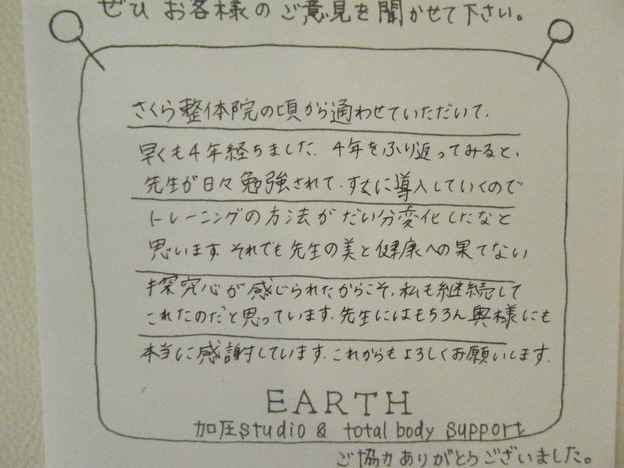 ぜひ お客様のご意見を聞かせて下さい。
さくら整体院の頃から通わせていただいて、
早くも4年経ちました。4年をふり返ってみると、
先生が日々勉強されて、すぐに導入していくので
トレーニングの方法がだい分変化したなと
思います。それでも先生の美と健康への果てない
探究心が感じられたからこそ、私も継続して
これたのだと思っています。先生にはもちろん奥様にも
本当に感謝しています。これからもよろしくお願いします。
EARTH
加圧studio & total body support
ご協力ありがとうございました。